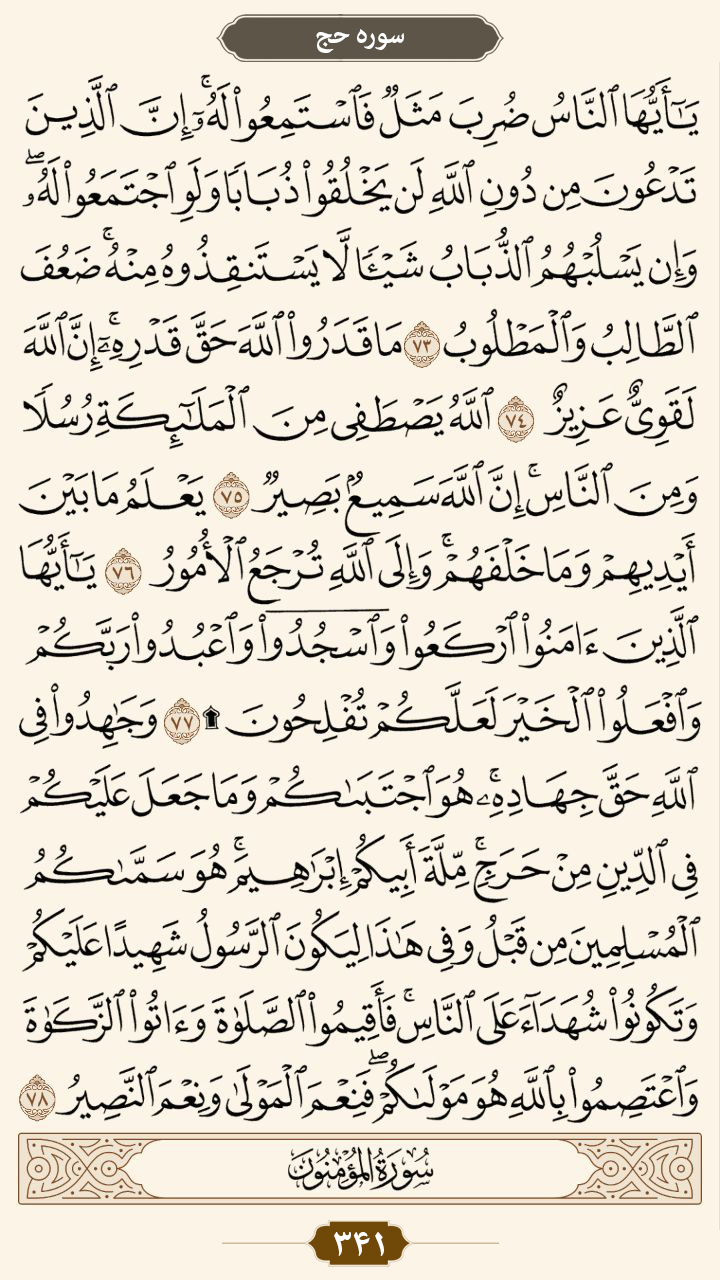 سوره حج
يَٰٓأَيُّهَا ٱلنَّاسُ ضُرِبَ مَثَلٞ فَٱسۡتَمِعُواْ لَهُۥٓۚ إِنَّ ٱلَّذِينَ
تَدۡعُونَ مِن دُونِ ٱللَّهِ لَن يَخۡلُقُواْ ذُبَابٗا وَلَوِ ٱجۡتَمَعُواْ لَهُۥۖ
وَإِن يَسۡلُبۡهُمُ ٱلذُّبَابُ شَيۡـٔٗا لَّا يَسۡتَنقِذُوهُ مِنۡهُۚ ضَعُفَ
ٱلطَّالِبُ وَٱلۡمَطۡلُوبُ ٧٣ مَا قَدَرُواْ ٱللَّهَ حَقَّ قَدۡرِهِۦٓۚ إِنَّ ٱللَّهَ
لَقَوِيٌّ عَزِيزٌ ٧٤ ٱللَّهُ يَصۡطَفِي مِنَ ٱلۡمَلَٰٓئِكَةِ رُسُلٗا
وَمِنَ ٱلنَّاسِۚ إِنَّ ٱللَّهَ سَمِيعُۢ بَصِيرٞ ٧٥ يَعۡلَمُ مَا بَيۡنَ
أَيۡدِيهِمۡ وَمَا خَلۡفَهُمۡۚ وَإِلَى ٱللَّهِ تُرۡجَعُ ٱلۡأُمُورُ ٧٦ يَٰٓأَيُّهَا
ٱلَّذِينَ ءَامَنُواْ ٱرۡكَعُواْ وَٱسۡجُدُواْ وَٱعۡبُدُواْ رَبَّكُمۡ
وَٱفۡعَلُواْ ٱلۡخَيۡرَ لَعَلَّكُمۡ تُفۡلِحُونَ ۩ ٧٧ وَجَٰهِدُواْ فِي
ٱللَّهِ حَقَّ جِهَادِهِۦۚ هُوَ ٱجۡتَبَىٰكُمۡ وَمَا جَعَلَ عَلَيۡكُمۡ
فِي ٱلدِّينِ مِنۡ حَرَجٖۚ مِّلَّةَ أَبِيكُمۡ إِبۡرَٰهِيمَۚ هُوَ سَمَّىٰكُمُ
ٱلۡمُسۡلِمِينَ مِن قَبۡلُ وَفِي هَٰذَا لِيَكُونَ ٱلرَّسُولُ شَهِيدًا عَلَيۡكُمۡ
وَتَكُونُواْ شُهَدَآءَ عَلَى ٱلنَّاسِۚ فَأَقِيمُواْ ٱلصَّلَوٰةَ وَءَاتُواْ ٱلزَّكَوٰةَ
وَٱعۡتَصِمُواْ بِٱللَّهِ هُوَ مَوۡلَىٰكُمۡۖ فَنِعۡمَ ٱلۡمَوۡلَىٰ وَنِعۡمَ ٱلنَّصِيرُ ٧٨
سُورَةُ المُؤۡمِنُونَ
۳۴۱